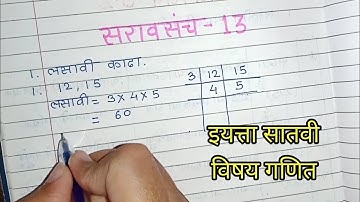 सरावसंच - 13
1. लसावी काढा.
1. 12, 15
3 | 12 | 15
4 | 5
लसावी = 3 × 4 × 5
= 60
इयत्ता सातवी
विषय गणित